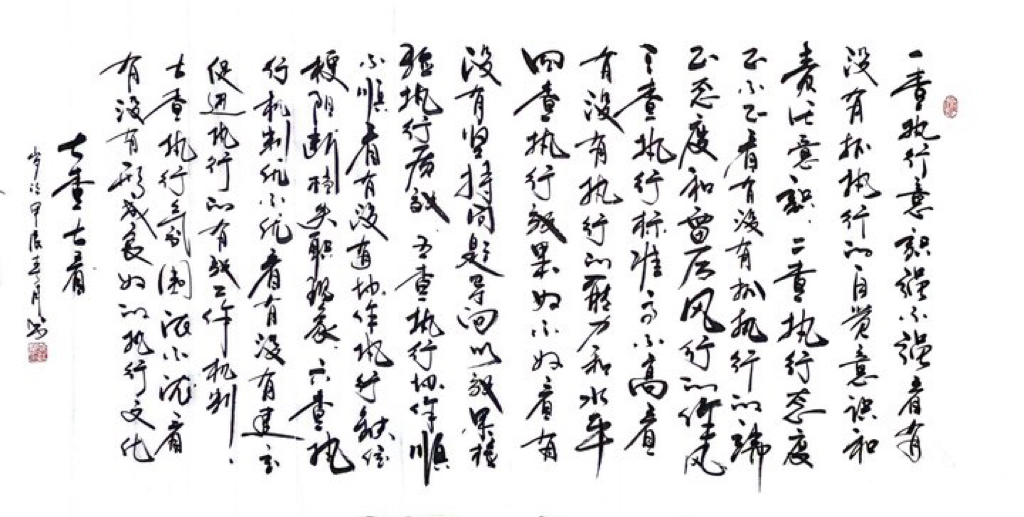 一查执行意识强不强看有
没有抓执行的自觉意识和
责任意识.二查执行态度
正不正看有没有抓执行的端
正态度和雷厉风行的作风
三查执行标准高不高看
有没有执行的能力和水平
四查执行效果好不好看有
没有坚持问题导向以效果检
验执行质效.五查执行协作顺
不顺看有没有协作执行缺位
梗阻断档失职现象.六查执
行机制优不优看有没有建立
促进执行的有效工作机制.
七查执行氛围浓不浓看
有没有形成良好的执行文化
七查七看
岁次甲辰